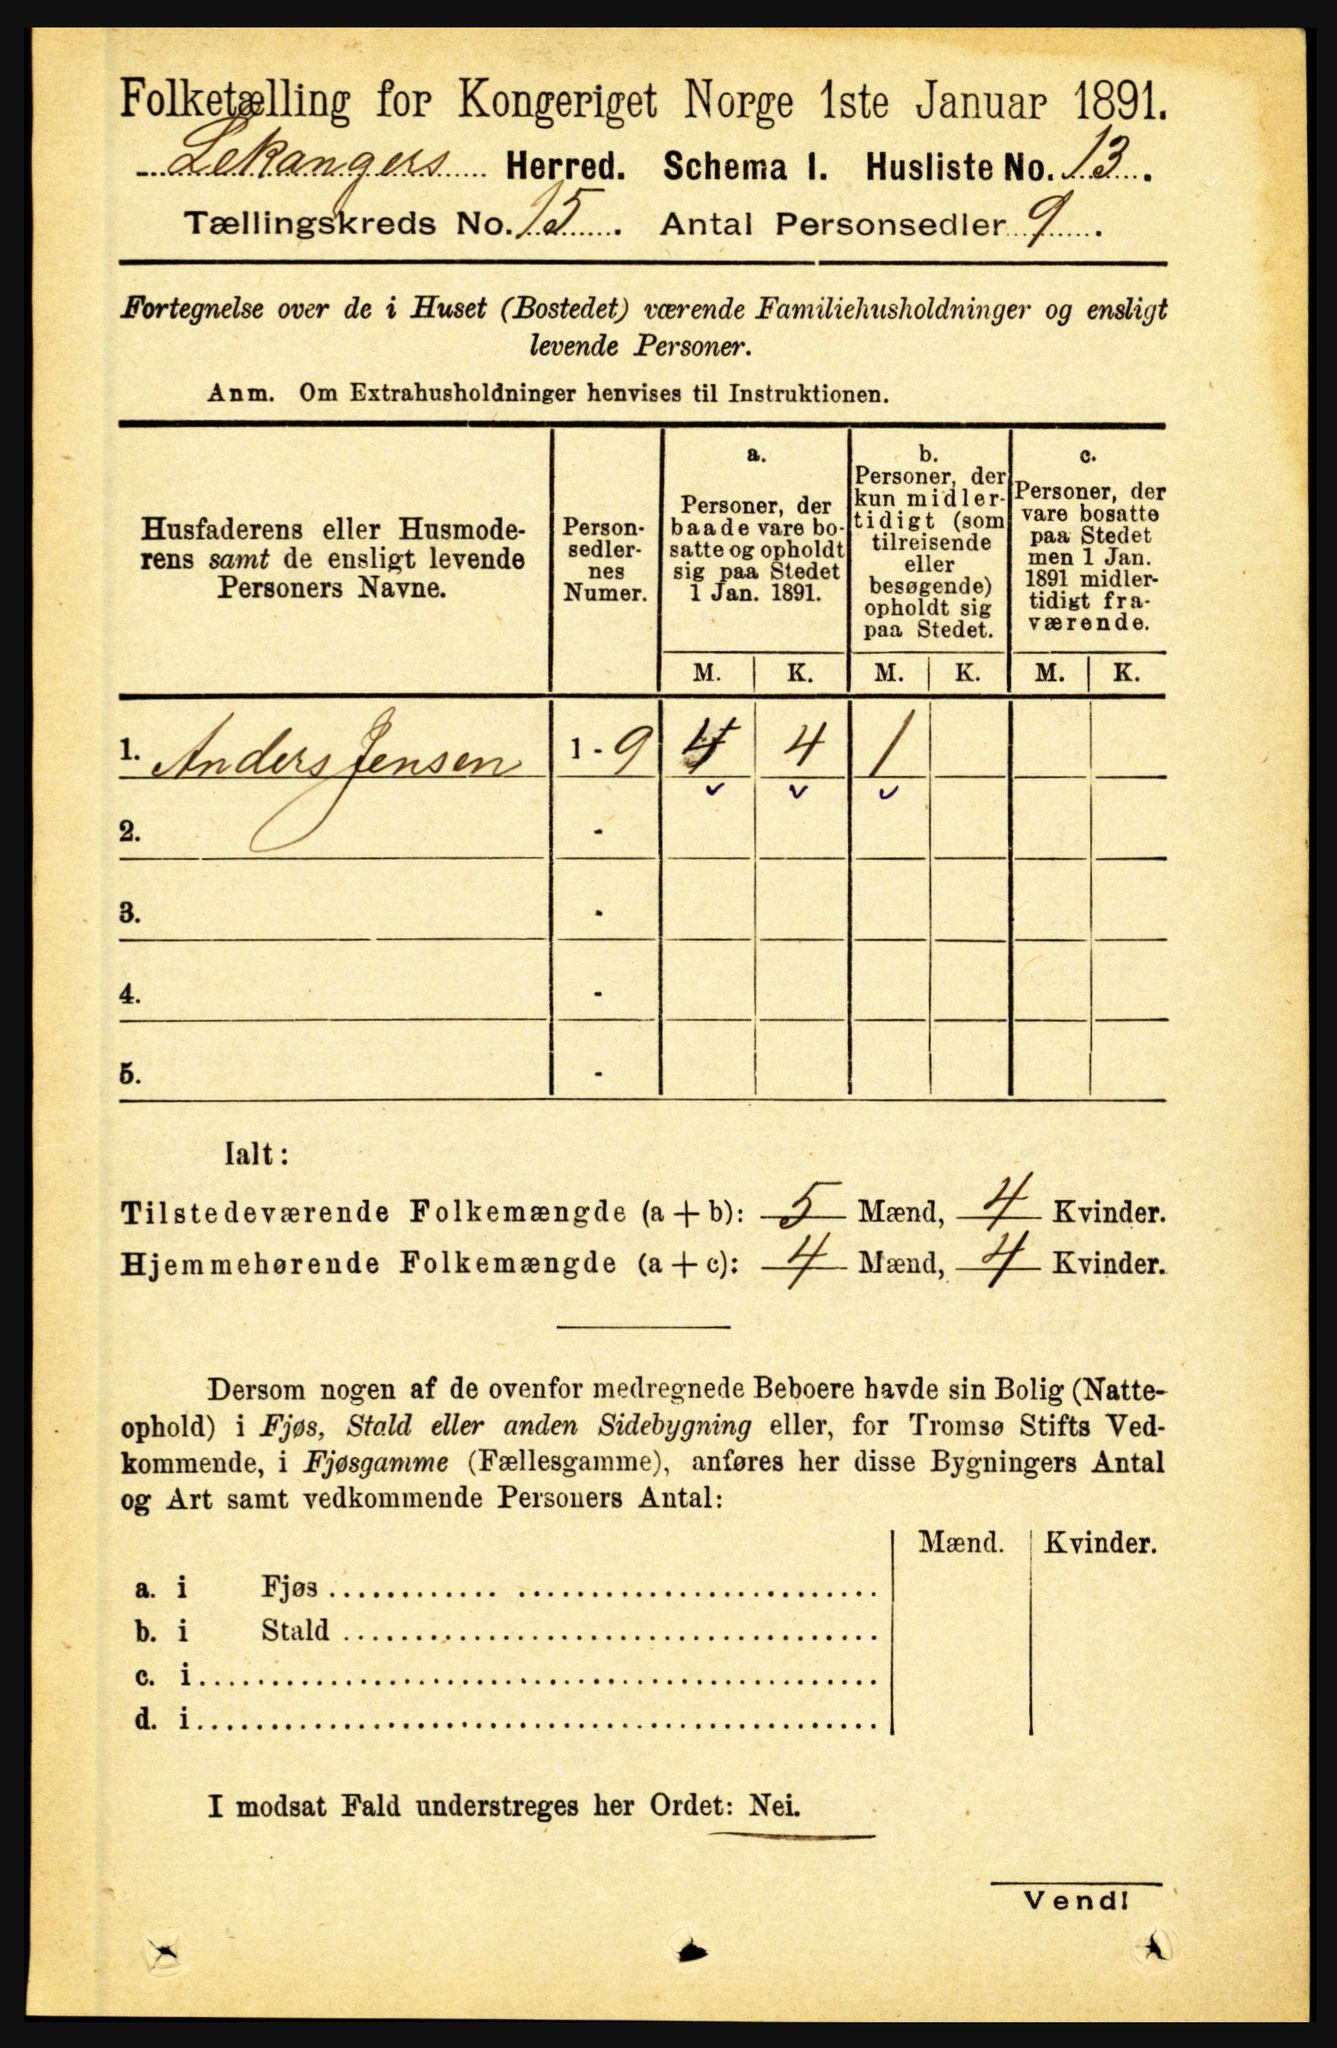 Folketælling for Kongeriget Norge 1ste Januar 1891.
Lekangers Herred. Schema I. Husliste No. 13.
Tællingskreds No. 15. Antal Personsedler 9.
Fortegnelse over de i Huset (Bostedet) værende Familiehusholdninger og ensligt
levende Personer.
Anm. Om Extrahusholdninger henvises til Instruktionen.
Husfaderens eller Husmode-
rens samt de ensligt levende
Personers Navne.
Person-
sedler-
nes
Numer.
a.
Personer, der
baade vare bo-
satte og opholdt
sig paa Stedet
1 Jan. 1891.
b.
Personer, der
kun midler-
tidigt (som
tilreisende
eller
besøgende)
opholdt sig
paa Stedet.
c.
Personer, der
vare bosatte
paa Stedet
men 1 Jan.
1891 midler-
tidigt fra-
værende.
M. K. M. K. M. K.
1. Anders Jensen 1 - 9 4 4 1
2. -
3. -
4. -
5. -
Ialt:
Tilstedeværende Folkemængde (a + b): 5 Mænd, 4 Kvinder.
Hjemmehørende Folkemængde (a + c): 4 Mænd, 4 Kvinder.
Dersom nogen af de ovenfor medregnede Beboere havde sin Bolig (Natte-
ophold) i Fjøs, Stald eller anden Sidebygning eller, for Tromsø Stifts Ved-
kommende, i Fjøsgamme (Fællesgamme), anføres her disse Bygningers Antal
og Art samt vedkommende Personers Antal:
Mænd. Kvinder.
a. i Fjøs
b. i Stald
c. i
d. i
I modsat Fald understreges her Ordet: Nei.
Vend!